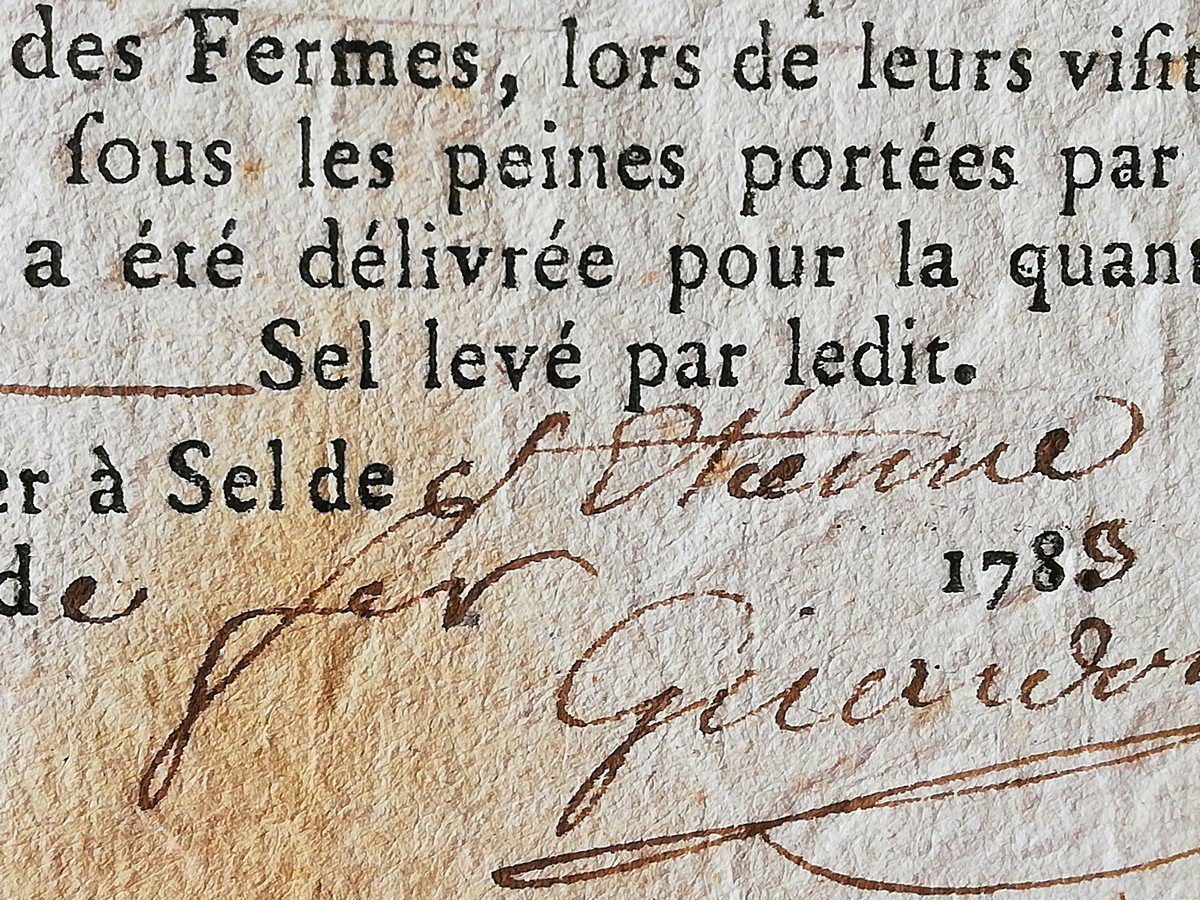 des Fermes, lors de leurs viſit
ſous les peines portées par
a été délivrée pour la quant
Sel levé par ledit.
er à Sel de St Etienne
de fer 1783